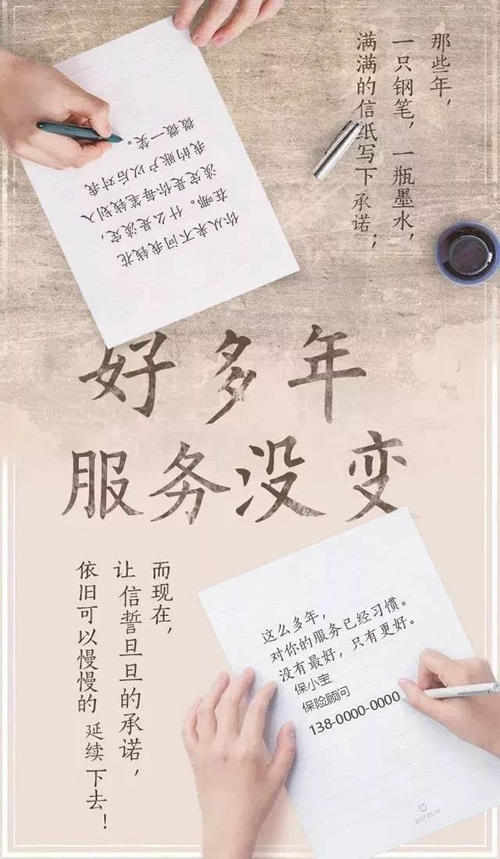 那些年，
一只钢笔，一瓶墨水，
满满的信纸写下承诺；
你从来不问我钱花
在哪。什么是淡定，
淡定是你每笔钱划入
我的账户以后对我
微微一笑。
好多年
服务没变
而现在，
让信誓旦旦的承诺，
依旧可以慢慢的 延续下去！
这么多年，
对你的服务已经习惯。
没有最好，只有更好。
保小宝
保险顾问
138-0000-0000